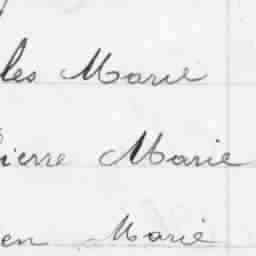 les Marie
ierre Marie
en Marie